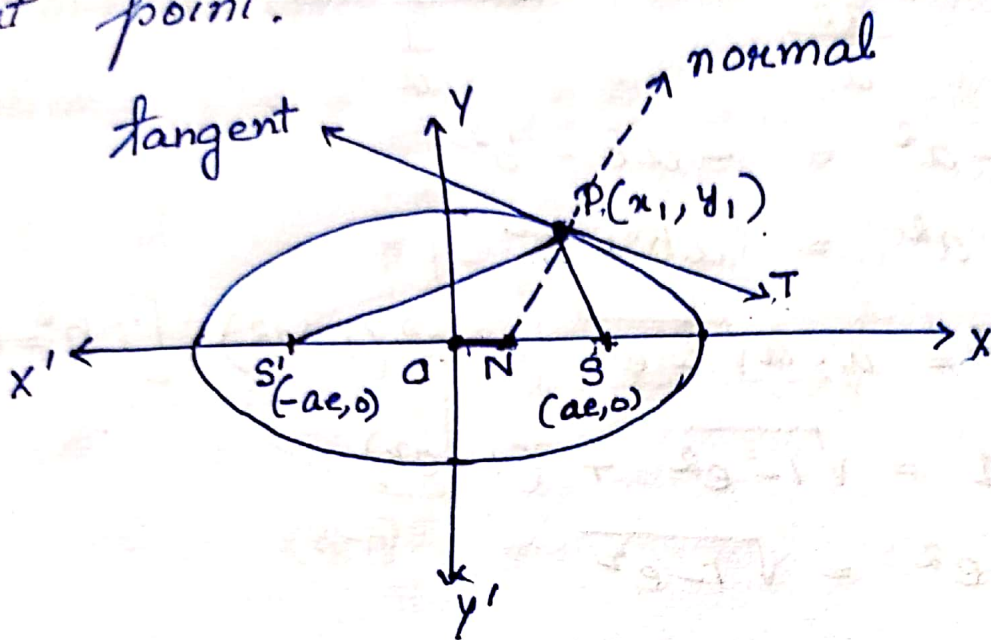 point.
normal
tangent
Y
P(x₁, y₁)
T
X' S' O N S X
(-ae,0) (ae,0)
Y'